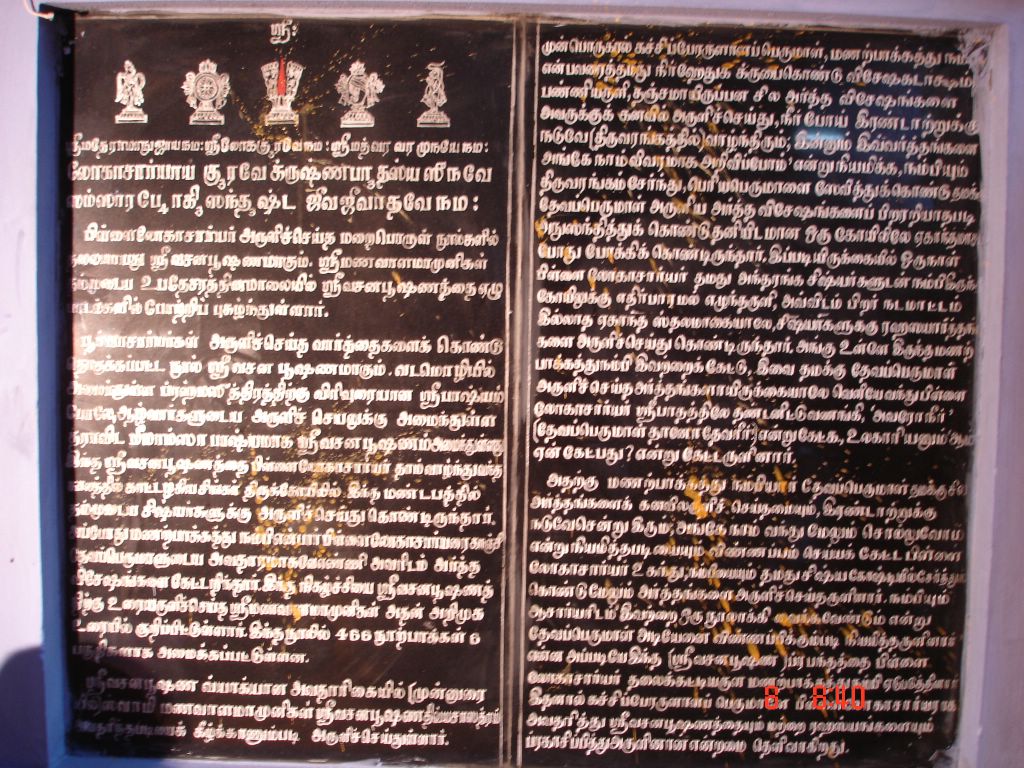 ஸ்ரீ:
லோகாசார்யாய குரவே க்ருஷ்ணபாதஸ்ய ஸூநவே
ஸம்ஸார போகி ஸந்தஷ்ட ஜீவஜீவாதவே நம:
பிள்ளைலோகாசார்யர் அருளிச்செய்த மறைபொருள் நூல்களில்
ஸ்ரீ வசனபூஷணமாகும். ஸ்ரீமணவாளமாமுனிகள்
உபதேசரத்தினமாலையில் ஸ்ரீவசனபூஷணத்தை ஏழு
போற்றிப் புகழ்ந்துள்ளார்.
பூர்வாசார்யர்கள் அருளிச்செய்த வார்த்தைகளைக் கொண்டு
தொகுக்கப்பட்ட நூல் ஸ்ரீவசன பூஷணமாகும். வடமொழியில்
விரிவுரையான ஸ்ரீபாஷ்யம்
போலே, ஆழ்வார்களுடைய அருளிச் செயலுக்கு அமைந்துள்ள
ஸ்ரீவசனபூஷணம்
இந்த ஸ்ரீவசனபூஷணத்தை பிள்ளைலோகாசார்யர் தாம் வாழ்ந்து
திருக்கோயிலில் இந்த மண்டபத்தில்
தம்முடைய சிஷ்யர்களுக்கு அருளிச்செய்து கொண்டிருந்தார்.
அப்போது மணற்பாக்கத்து நம்பி என்பார் பிள்ளைலோகாசார்யரை
தேவப்பெருமாளுடைய அவதாரமாகவே எண்ணி அவரிடம் அர்த்த
விசேஷங்களை கேட்டறிந்தார். இந்த நிகழ்ச்சியை ஸ்ரீவசனபூஷணத்
திற்கு உரையருளிச்செய்த ஸ்ரீமணவாளமாமுனிகள் அதன் அறிமுக
உரையில் குறிப்பிட்டுள்ளார். இந்த நூலில் 466 நூற்பாக்கள் 6
பகுதிகளாக அமைக்கப்பட்டுள்ளன.
ஸ்ரீவசனபூஷண வ்யாக்யான அவதாரிகையில் (முன்னுரை
மணவாளமாமுனிகள் ஸ்ரீவசனபூஷண
கீழ்க்காணும்படி அருளிச்செய்துள்ளார்.
முன்பொருகால் கச்சிப்பேரருளாளப்பெருமாள், மணற்பாக்கத்து நம்பி
என்பவரைத்தமது நிர்ஹேதுக க்ருபைகொண்டு விசேஷகடாக்ஷம்
பண்ணியருளி, தஞ்சமாயிருப்பன சில அர்த்த விசேஷங்களை
அவருக்குக் கனவில் அருளிச்செய்து, நீர் போய் இரண்டாற்றுக்கு
நடுவே (திருவரங்கத்தில்) வாழ்ந்திரும்; இன்னும் இவ்வர்த்தங்களை
அங்கே நாம் விவரமாக அறிவிப்போம்' என்று நியமிக்க, நம்பியும்
திருவரங்கம் சேர்ந்து, பெரியபெருமாளை ஸேவித்துக்கொண்டு தமக்கு
தேவப்பெருமாள் அருளிய அர்த்த விசேஷங்களைப் பிறரறியாதபடி
அநுஸந்தித்துக் கொண்டு தனியிடமான ஒரு கோயிலிலே ஏகாந்தமாக
போது போக்கிக் கொண்டிருந்தார். இப்படியிருக்கையில் ஒருநாள்
பிள்ளை லோகாசார்யர் தமது அந்தரங்க சிஷ்யர்களுடன் நம்பியிருந்த
கோயிலுக்கு எதிர்பாராமல் எழுந்தருளி, அவ்விடம் பிறர் நடமாட்டம்
இல்லாத ஏகாந்த ஸ்தலமாகையாலே, சிஷ்யர்களுக்கு ரஹஸ்யார்த்தங்
களை அருளிச்செய்து கொண்டிருந்தார். அங்கு உள்ளே இருந்த மணற்
பாக்கத்துநம்பி இவற்றைக் கேட்டு, இவை தமக்கு தேவப்பெருமாள்
அருளிச்செய்த அர்த்தங்களாயிருக்கையாலே வெளியே வந்து பிள்ளை
லோகாசார்யர் ஸ்ரீபாதத்திலே தண்டனிட்டு வணங்கி, 'அவரோ நீர்'
(தேவப்பெருமாள் தானோ தேவரீர்) என்று கேட்க, உலகாரியனும் ஆம்
ஏன் கேட்பது? என்று கேட்டருளினார்.
அதற்கு மணற்பாக்கத்து நம்பியார் தேவப்பெருமாள் தமக்கு சில
அர்த்தங்களைக் கனவிலருளிச் செய்தமையும், இரண்டாற்றுக்கு
நடுவே சென்று இரும்; அங்கே நாம் வந்து மேலும் சொல்லுவோம்
என்று நியமித்தபடியையும் விண்ணப்பம் செய்யக் கேட்ட பிள்ளை
லோகாசார்யர் உகந்து, நம்பியையும் தமது சிஷ்ய கோஷ்டியில் சேர்த்துக்
கொண்டு மேலும் அர்த்தங்களை அருளிச்செய்தருளினார். நம்பியும்
ஆசார்யரிடம் இவற்றை ஒரு நூலாக்கி அருளவேண்டும் என்று
தேவப்பெருமாள் அடியேனை விண்ணப்பிக்கும்படி நியமித்தருளினார்
என்ன அப்படியே இந்த (ஸ்ரீவசனபூஷண) ப்ரபந்தத்தை பிள்ளை
லோகாசார்யர் தலைக்கட்டியருள மணற்பாக்கத்து நம்பி
இதனால் கச்சிப்பேரருளாளப் பெருமாளே பிள்ளைலோகாசார்யராக
அவதரித்து ஸ்ரீவசனபூஷணத்தையும் மற்றை ரஹஸ்யங்களையும்
ப்ரகாசிப்பித்து அருளினான் என்றமை தெளிவாகிறது.
8 8:40